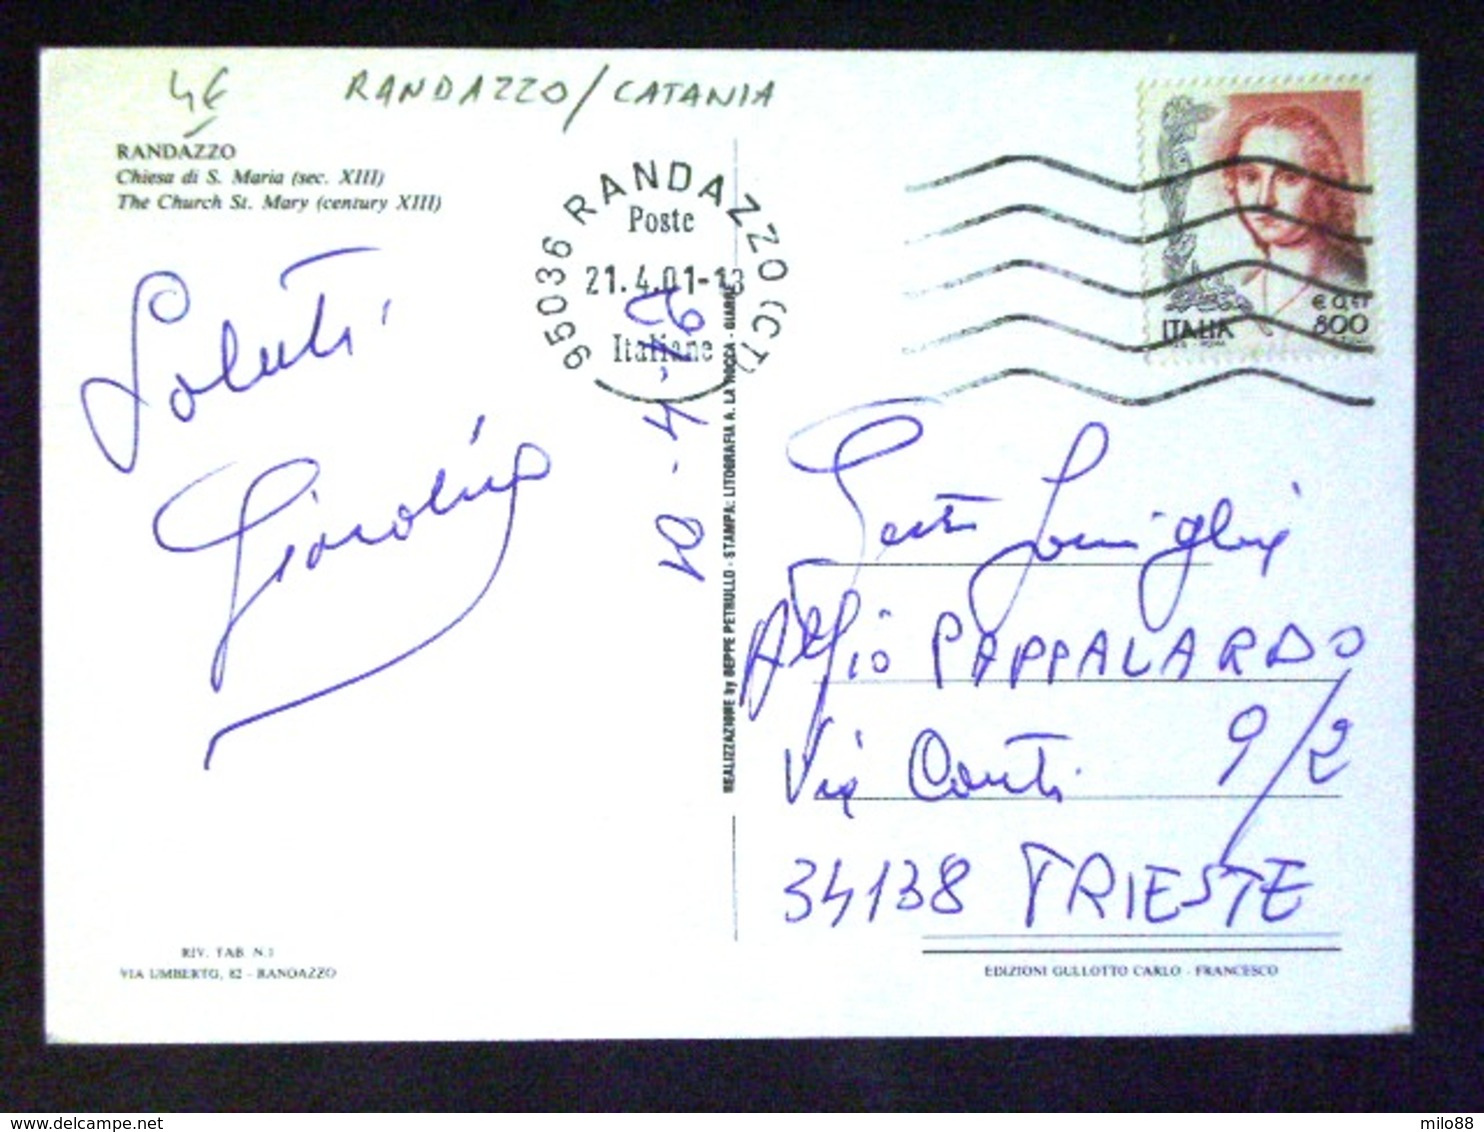 4€ RANDAZZO/CATANIA
RANDAZZO
Chiesa di S. Maria (sec. XIII)
The Church St. Mary (century XIII)
95036 RANDAZZO (CT)
Poste
21.4.01-13
Italiane
€ 0,41
800
ITALIA
Saluti
10-4-
REALIZZAZIONE by BEPPE PETRULLO - STAMPA: LITOGRAFIA A. LA ROCCA - GIARRE
Famiglia
Alfio PAPPALARDO
Via Conti 9/2
34138 TRIESTE
RIV. TAB. N.1
VIA UMBERTO, 82 - RANDAZZO
EDIZIONI GULLOTTO CARLO - FRANCESCO
delcampe.net
milo88